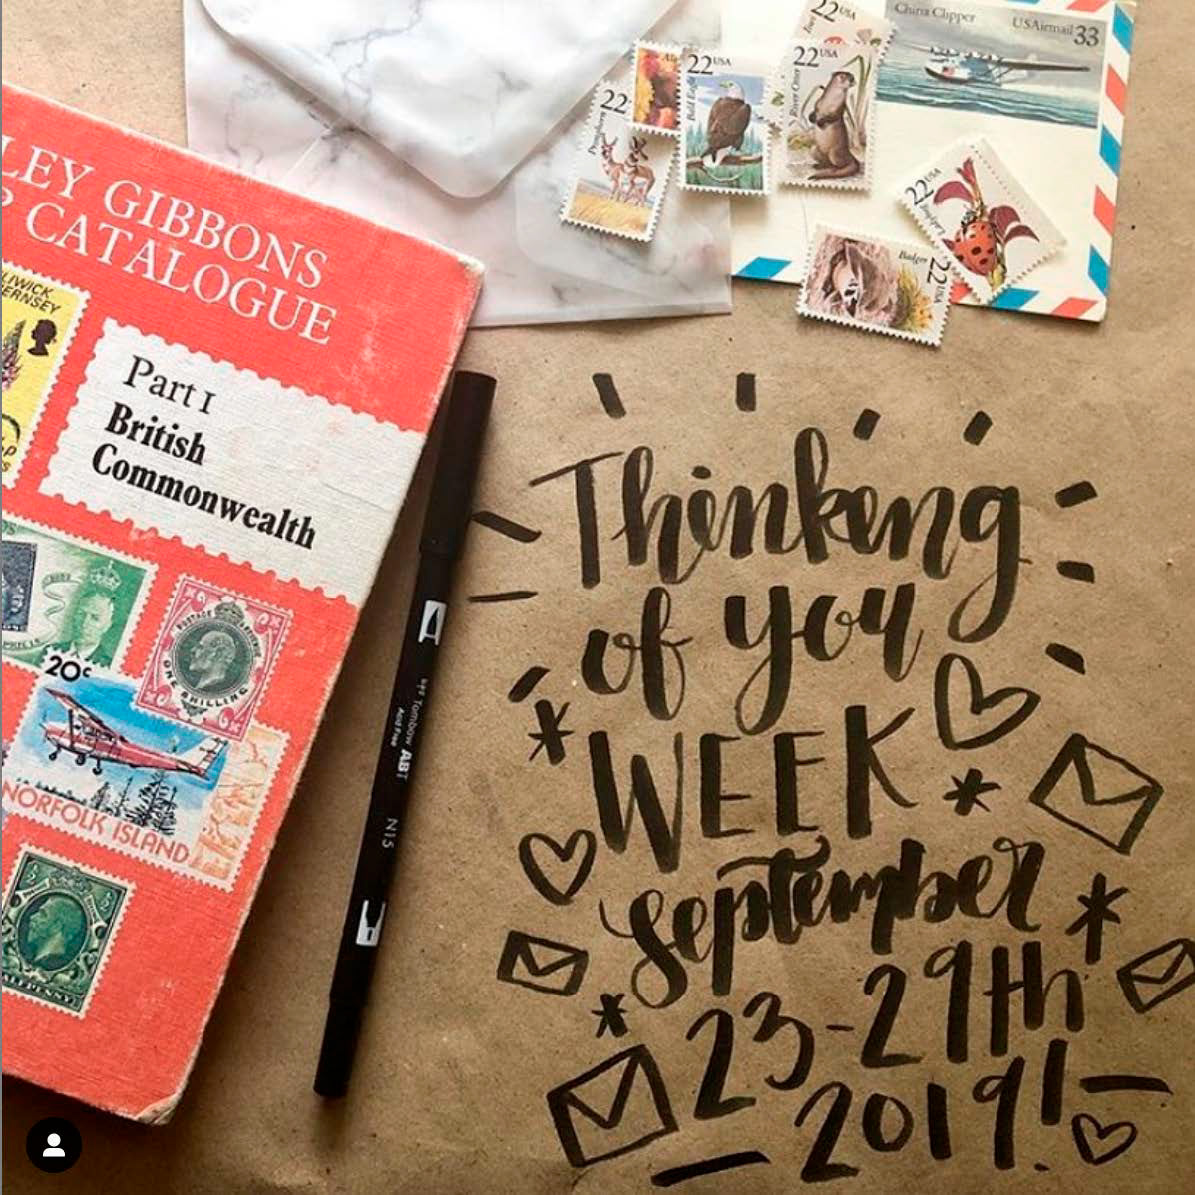 LEY GIBBONS
P CATALOGUE
Part 1
British
Commonwealth
20c
NORFOLK ISLAND
POSTAGE REVENUE
ONE SHILLING
HALFPENNY
Tombow ABT
N15
China Clipper
USAirmail 33
22 USA
22 USA
Bald Eagle
22 USA
River Otter
22
22 USA
22 USA
Badger
Thinking
of you
WEEK
September
23-29th
2019!